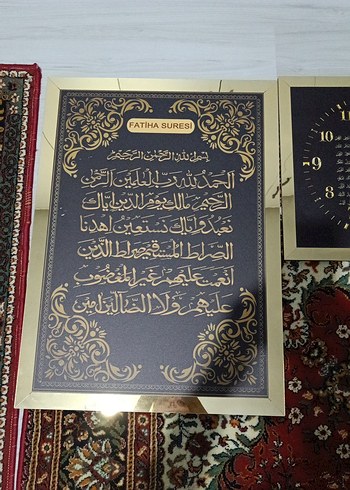 FATİHA SURESİ
بسم الله الرحمن الرحيم
الحمد لله رب العالمين الرحمن
الرحيم مالك يوم الدين إياك
نعبد وإياك نستعين اهدنا
الصراط المستقيم صراط الذين
أنعمت عليهم غير المغضوب
عليهم ولا الضالين آمين
11
10
9
8